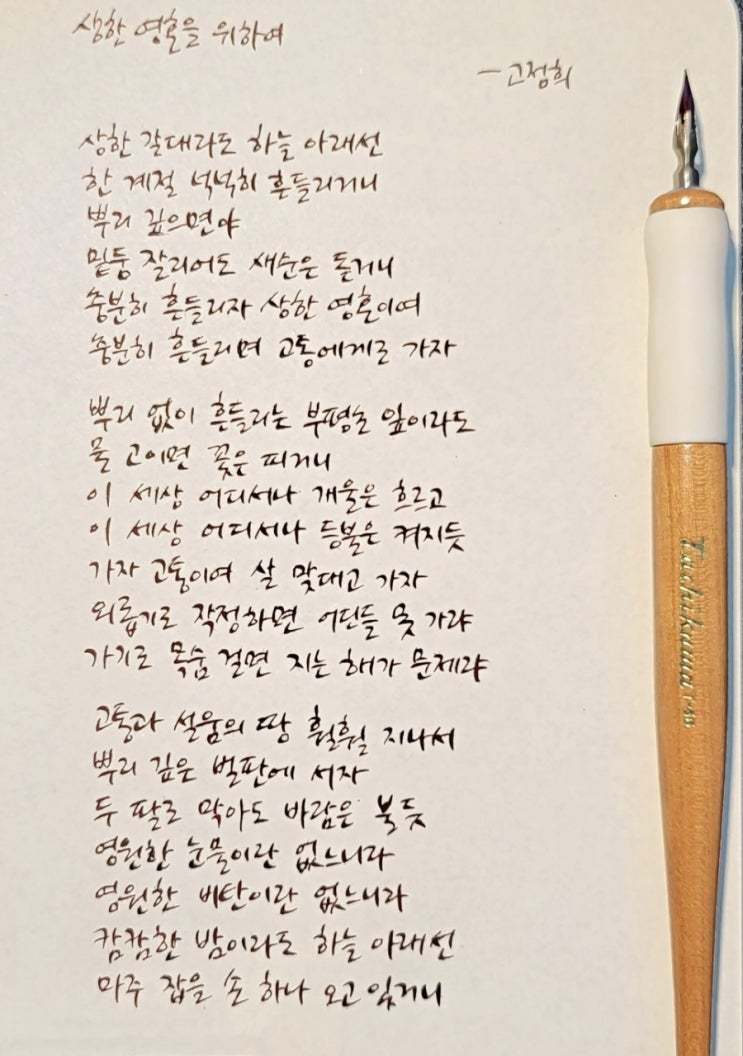 상한 영혼을 위하여
- 고정희
상한 갈대라도 하늘 아래선
한 계절 넉넉히 흔들리거니
뿌리 깊으면야
밑둥 잘리어도 새순은 돋거니
충분히 흔들리자 상한 영혼이여
충분히 흔들리며 고통에게로 가자
뿌리 없이 흔들리는 부평초 잎이라도
물 고이면 꽃은 피거니
이 세상 어디서나 개울은 흐르고
이 세상 어디서나 등불은 켜지듯
가자 고통이여 살 맞대고 가자
외롭기로 작정하면 어딘들 못 가랴
가기로 목숨 걸면 지는 해가 문제랴
고통과 설움의 땅 훨훨 지나서
뿌리 깊은 벌판에 서자
두 팔로 막아도 바람은 불듯
영원한 눈물이란 없느니라
영원한 비탄이란 없느니라
캄캄한 밤이라도 하늘 아래선
마주 잡을 손 하나 오고 있거니
Tachikawa T-40